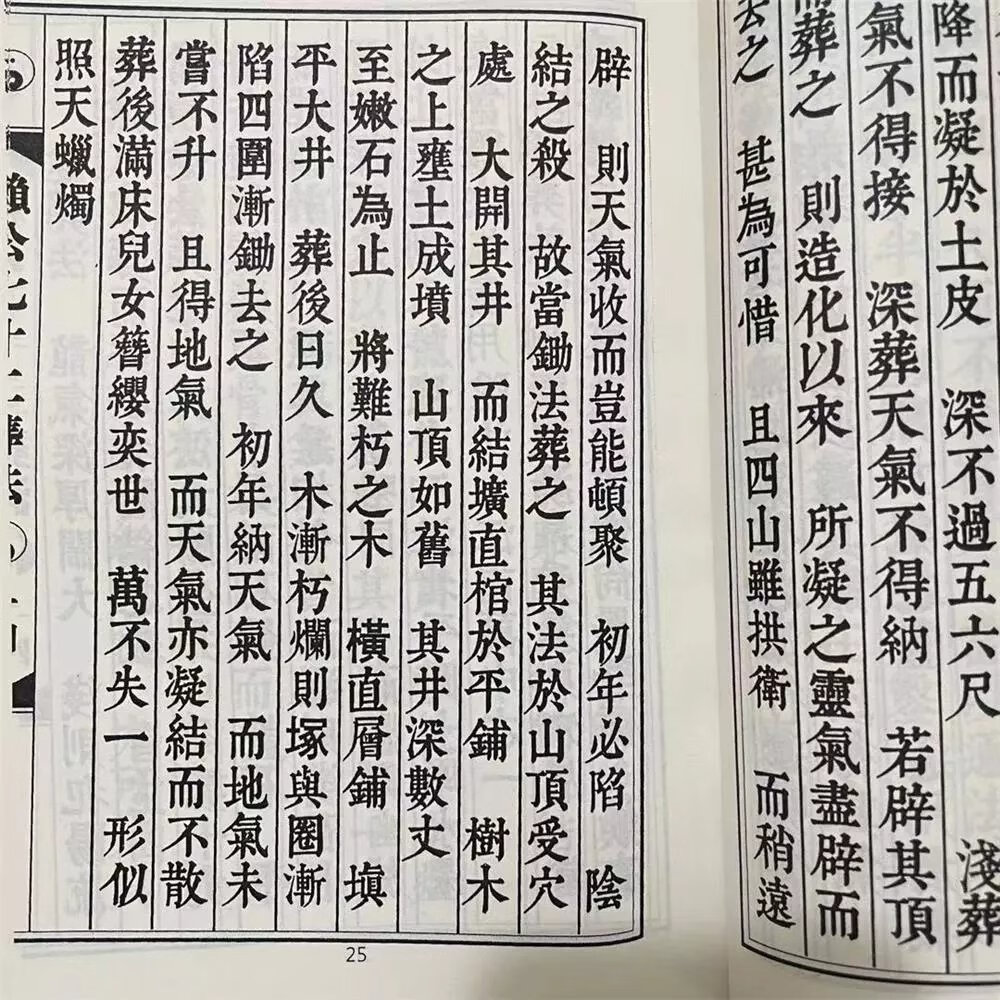 降而凝於土皮 深不過五六尺 淺葬
氣不得接 深葬天氣不得納 若辟其頂
葬之 則造化以來 所凝之靈氣盡辟而
去之 甚為可惜 且四山雖拱衛 而稍遠
辟 則天氣收而豈能頓聚 初年必陷 陰
結之殺 故當鋤法葬之 其法於山頂受穴
處 大開其井 而結壙直棺於平鋪 樹木
之上壅土成墳 山頂如舊 其井深數丈
至嫩石為止 將難朽之木 橫直層鋪 填
平大井 葬後日久 木漸朽爛則塚與圈漸
陷四圍漸鋤去之 初年納天氣 而地氣未
嘗不升 且得地氣 而天氣亦凝結而不散
葬後滿床兒女簪纓奕世 萬不失一 形似
照天蠟燭
25